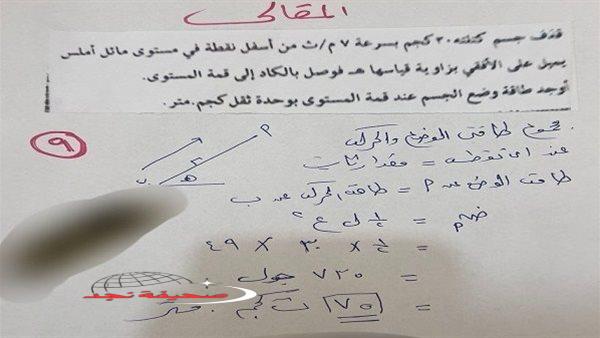 المقالى
قذف جسم كتلته ٣٠ كجم بسرعة ٧ م/ث من أسفل نقطة في مستوى مائل أملس
يميل على الأفقي بزاوية قياسها هـ فوصل بالكاد إلى قمة المستوى.
أوجد طاقة وضع الجسم عند قمة المستوى بوحدة ثقل كجم.متر.
٩
مجموع طاقتى الوضع والحركة
عند اى نقطه = مقدار ثابت
طاقة الوضع عند م = طاقة الحركة عند ب
ض م = ½ ل ع ٢
= ½ × ٣٠ × ٤٩
= ٧٣٥ جول
= ٧٥ ث كجم . متر
صحيفة نجد